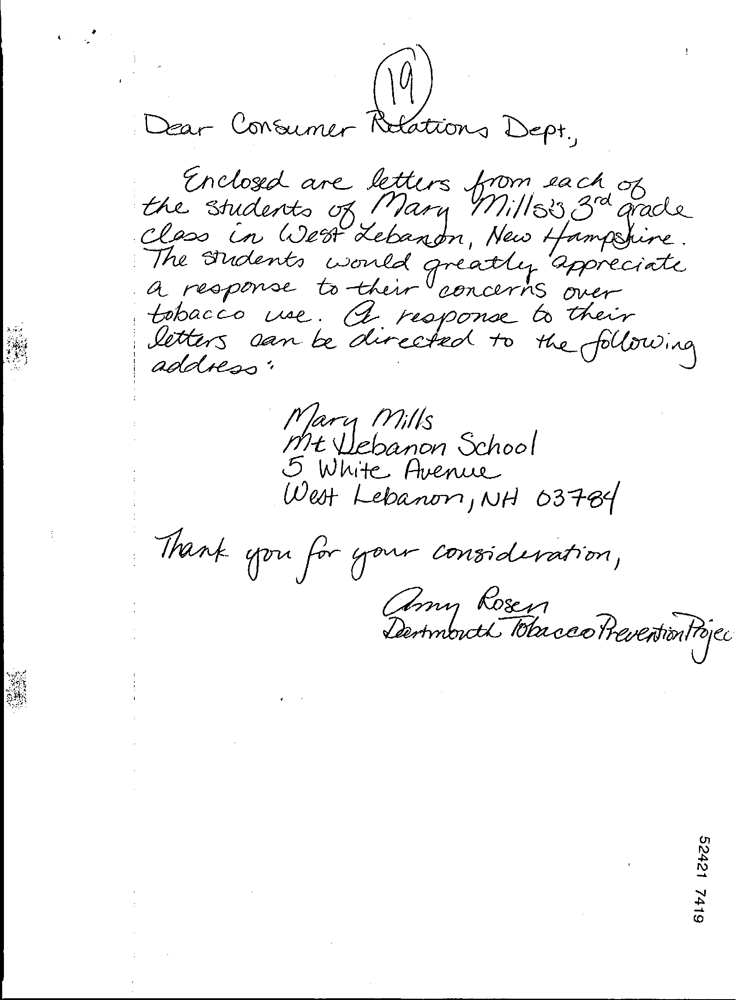 19
Dear Consumer Relations Dept.,
Enclosed are letters from each of
the students of Mary Mills's 3rd grade
class in West Lebanon, New Hampshire.
The students would greatly appreciate
a response to their concerns over
tobacco use. A response to their
letters can be directed to the following
address:
Mary Mills
Mt Lebanon School
5 White Avenue
West Lebanon, NH 03784
Thank you for your consideration,
Amy Rosen
Dartmouth Tobacco Prevention Projec
52421 7419